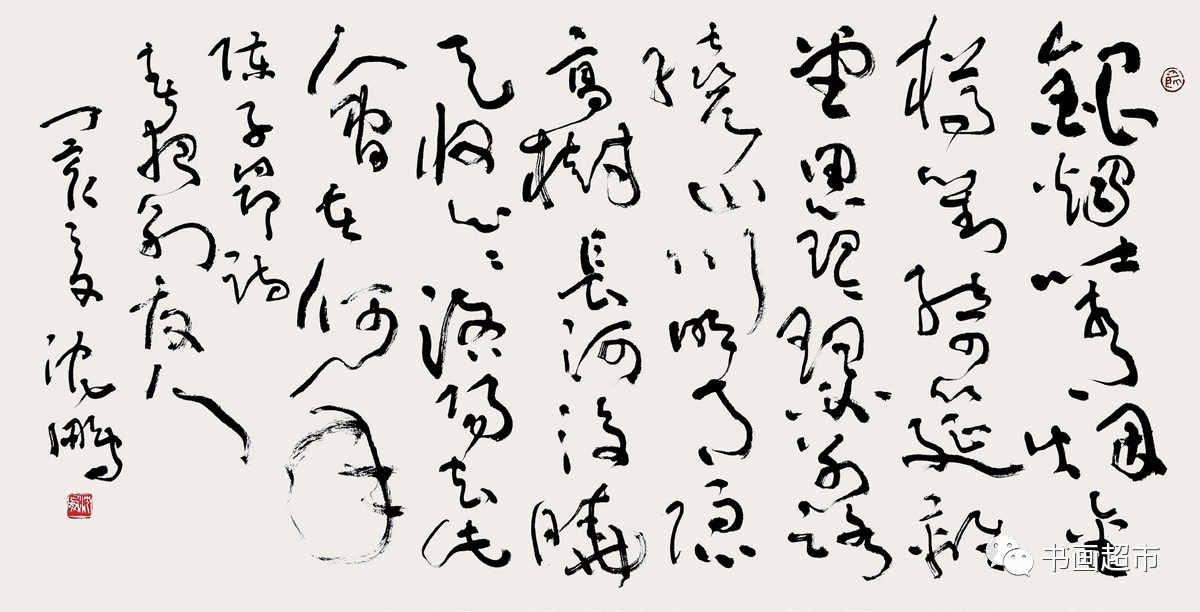 銀燭吐青烟金
樽對綺筵離
堂思琴瑟別路
繞山川明月隱
高樹長河沒曉
天悠悠洛陽去此
會在何年
陳子昂詩
春夜別友人
丁亥夏沈鵬
书画超市